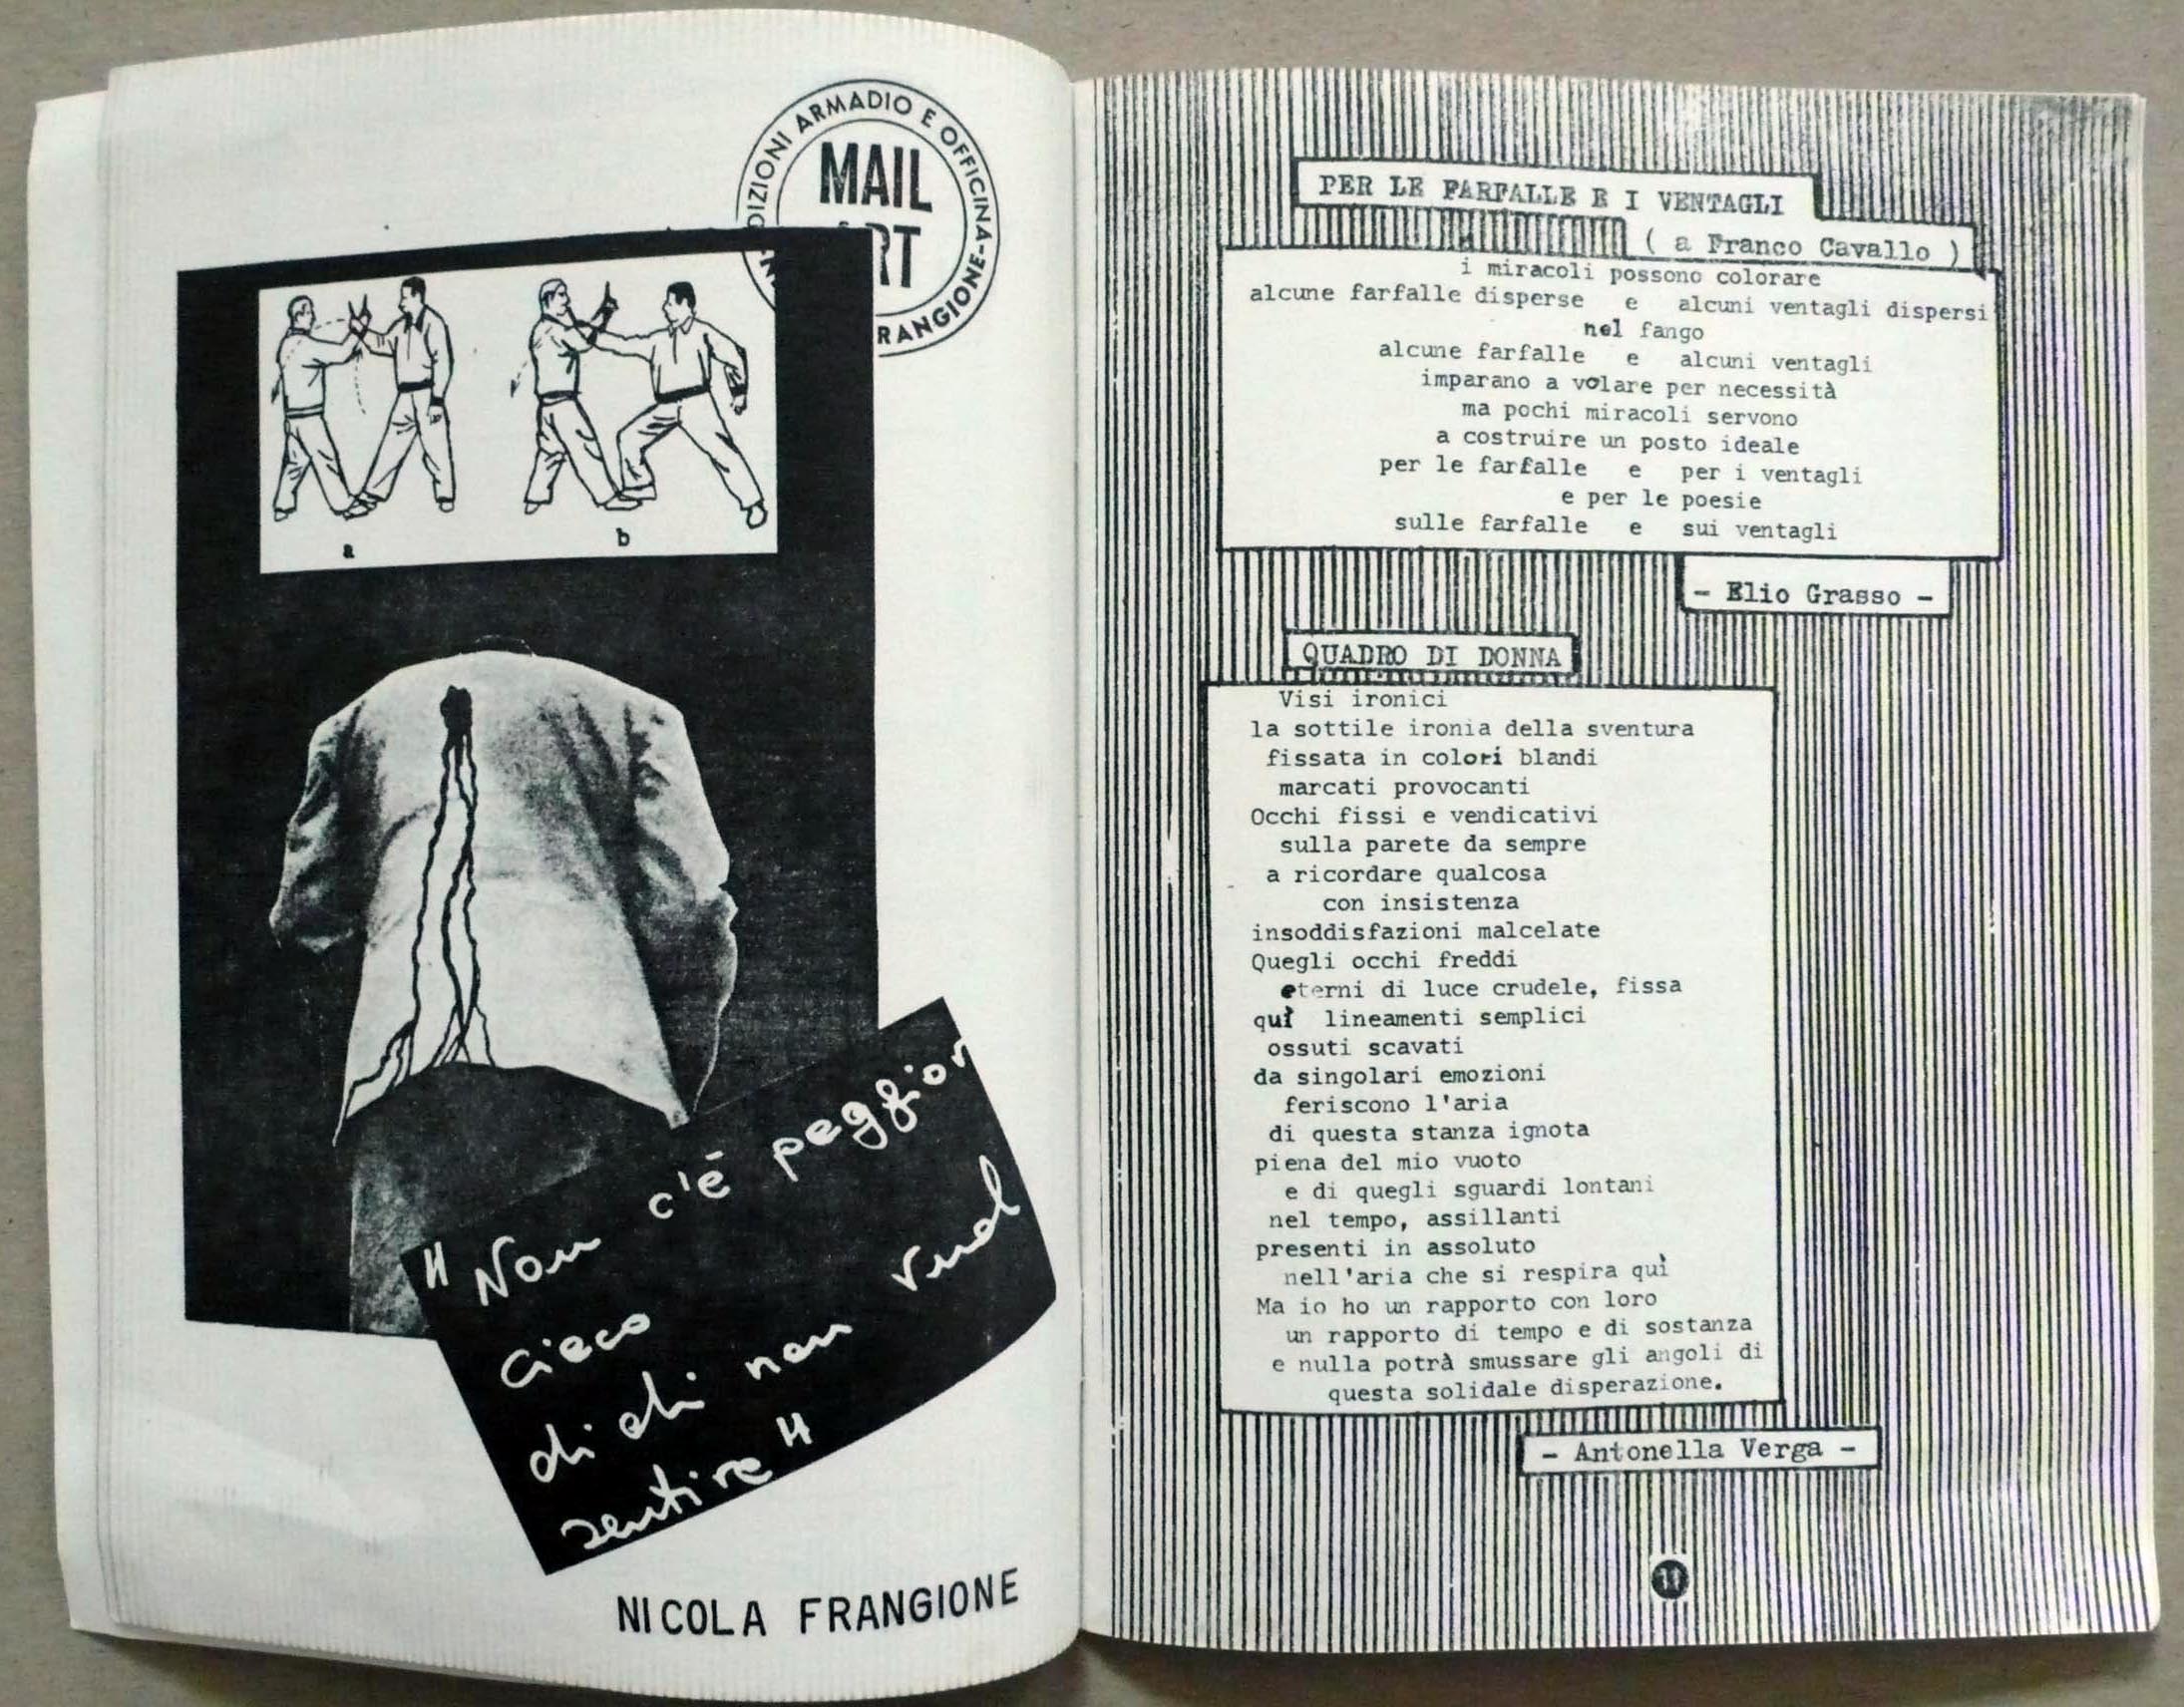 DIZIONI ARMADIO E OFFICINA-
RANGIONE-
MAIL
RT
a
b
" Non c'è peggior
cieco
di chi non vuol
sentire "
NICOLA FRANGIONE
PER LE FARFALLE E I VENTAGLI
( a Franco Cavallo )
i miracoli possono colorare
alcune farfalle disperse e alcuni ventagli dispersi
nel fango
alcune farfalle e alcuni ventagli
imparano a volare per necessità
ma pochi miracoli servono
a costruire un posto ideale
per le farfalle e per i ventagli
e per le poesie
sulle farfalle e sui ventagli
- Elio Grasso -
QUADRO DI DONNA
Visi ironici
la sottile ironia della sventura
fissata in colori blandi
marcati provocanti
Occhi fissi e vendicativi
sulla parete da sempre
a ricordare qualcosa
con insistenza
insoddisfazioni malcelate
Quegli occhi freddi
eterni di luce crudele, fissa
quì lineamenti semplici
ossuti scavati
da singolari emozioni
feriscono l'aria
di questa stanza ignota
piena del mio vuoto
e di quegli sguardi lontani
nel tempo, assillanti
presenti in assoluto
nell'aria che si respira quì
Ma io ho un rapporto con loro
un rapporto di tempo e di sostanza
e nulla potrà smussare gli angoli di
questa solidale disperazione.
- Antonella Verga -